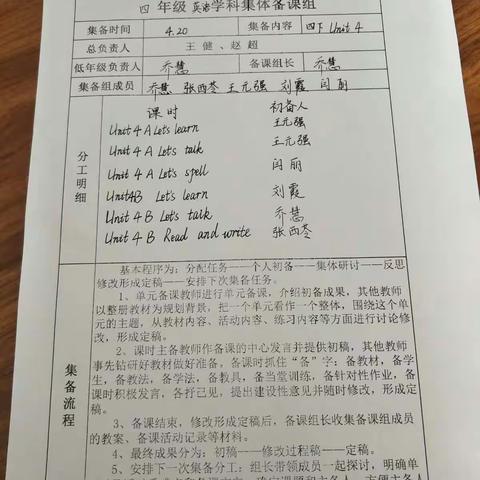 四 年级 英语 学科集体备课组
集备时间 4.20 集备内容 四下 Unit 4
总负责人 王 健、赵 超
低年级负责人 乔慧 备课组长 乔慧
集备组成员 乔慧 张西苓 王元强 刘霞 闫丽
分工明细
课时 初备人
Unit 4 A Let's learn 王元强
Unit 4 A Let's talk 王元强
Unit 4 A Let's spell 闫丽
Unit4B Let's learn 刘霞
Unit 4 B Let's talk 乔慧
Unit 4 B Read and write 张西苓
集备流程
基本程序为：分配任务——个人初备——集体研讨——反思
修改形成定稿——安排下次集备任务。
1、单元备课教师进行单元备课，介绍初备成果，其他教师
以整册教材为规划背景，把一个单元看作一个整体，围绕这个单
元的主题，从教材内容、活动内容、练习内容等方面进行讨论修
改，形成定稿。
2、课时主备教师作备课的中心发言并提供初稿，其他教师
事先钻研好教材做好准备。备课时抓住“备”字：备教材，备学
生，备教法，备学法，备教具，备当堂训练，备针对性作业，备
课时积极发言，各抒己见，提出建设性意见并随时修改，形成定
稿。
3、备课结束，修改形成定稿后，备课组长收集备课组成员
的教案、备课活动记录等材料。
4、最终成果分为：初稿——修改过程稿——定稿。
5、安排下一次集备分工：组长带领成员一起探讨，明确单